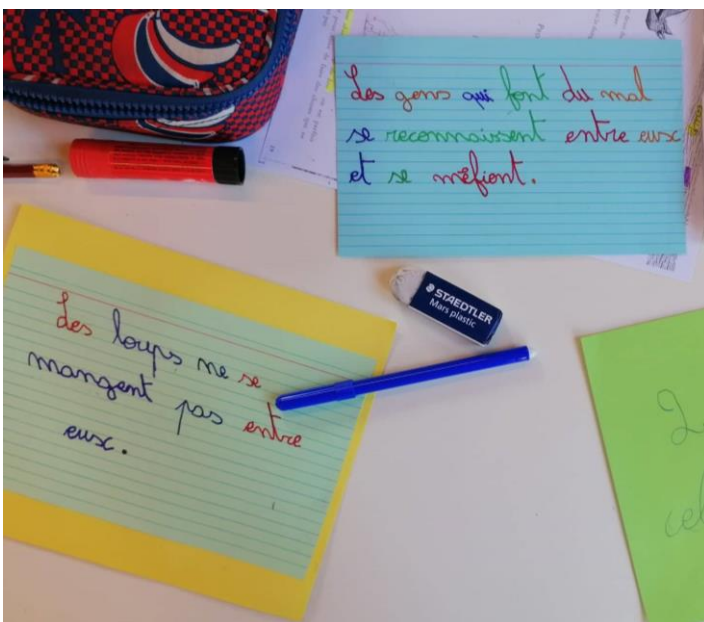 Les gens qui font du mal
se reconnaissent entre eux
et se méfient.
STAEDTLER
Mars plastic
Les loups ne se
mangent pas entre
eux.